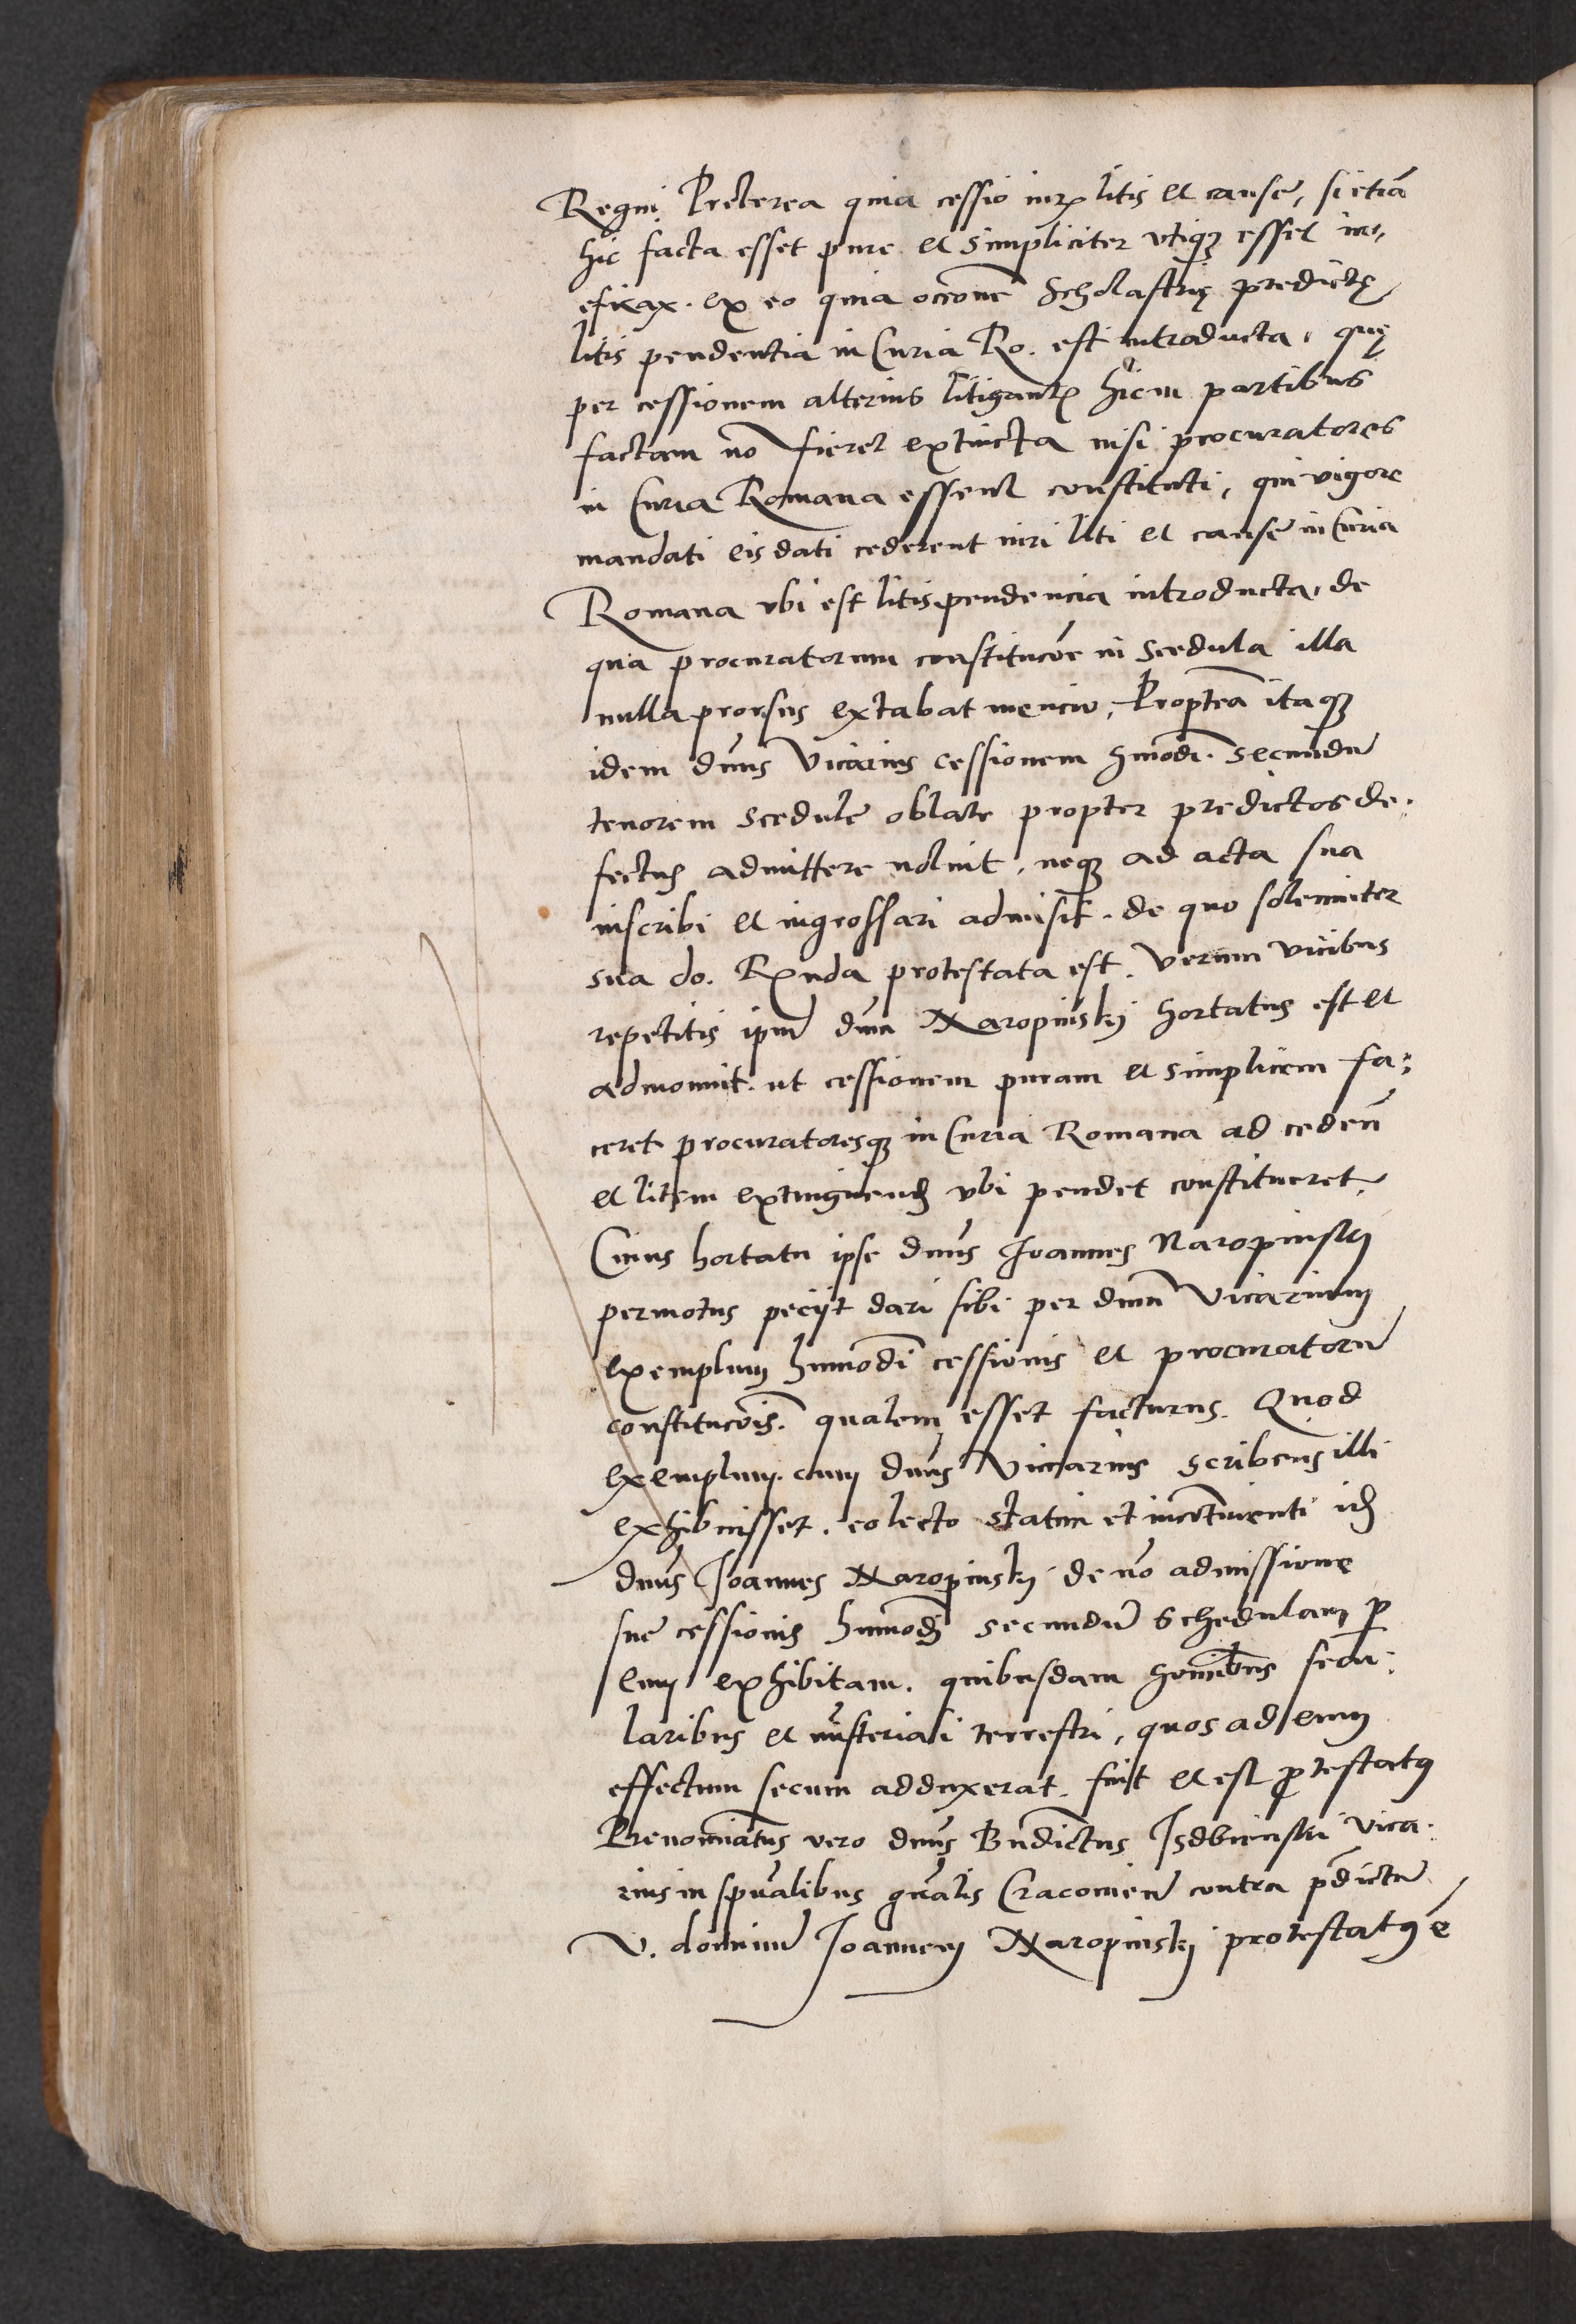 Regni. Preterea quia cessio iurꝭ litis et causę, si etiā
hic facta esset pure et simpliciter utiqꝫ esset in-
eficax. ex eo quia occ̄one Scholastrię predictę
litis pendentia in Curia Ro. est introducta, quę
per cessionem alterius litigantꝭ hic in partibus
factam nō fieret extincta nisi procuratores
in Curia Romana essent constituti, qui vigore
mandati eis dati cederent iuri liti et causę in Curia
Romana ubi est litispendencia introducta, de
qua procuratorum constitucōe in scedula illa
nulla prorsus extabat mencio, Propterea itaqꝫ
idem dn̄us Vicarius cessionem hmōdi. secundū
tenorem scedulę oblatę propter predictos de-
fectus admittere noluit, neqꝫ ad acta sua
inscribi et ingrossari admisit. de quo solenniter
sua do. Rnda protestata est. Verum vicibus
repetitis ipm̄ dnm̄ Naropinskj hortatus est et
admonuit. ut cessionem puram et simplicem fa-
ceret procuratoresqꝫ in Curia Romana ad cedenđ
et litem extinguenđ ubi pendet constitueret.
Cuius hortatu ipse dn̄us Joannes Naropinskj
permotus peciit dari sibi per dnm̄ Vicarium
exemplum huiusmōdi cessionis et procuratorū
constitucōis. qualem esset facturus. Quod
exemplum. cum dn̄us Vicarius scribens illi
exhibuisset. eo lecto statim et incōtinenti iđ
dn̄us Joannes Naropinskj de nō admissione
suę cessionis hmōđ secundū Schedulam p
eum exhibitam. quibusdam hoīibus secu-
laribus et mīsteriali terrestri, quos ad eum
effectum secum adduxerat. fuit et est ꝓtestatꝰ
Prenominatus vero dn̄us Bn̄dictus Isdbienski Vica-
rius in spūalibus gn̄alis Cracouieñ contra p̄dictū
V. dominū Joannem Naropinskj protestatꝰ ē